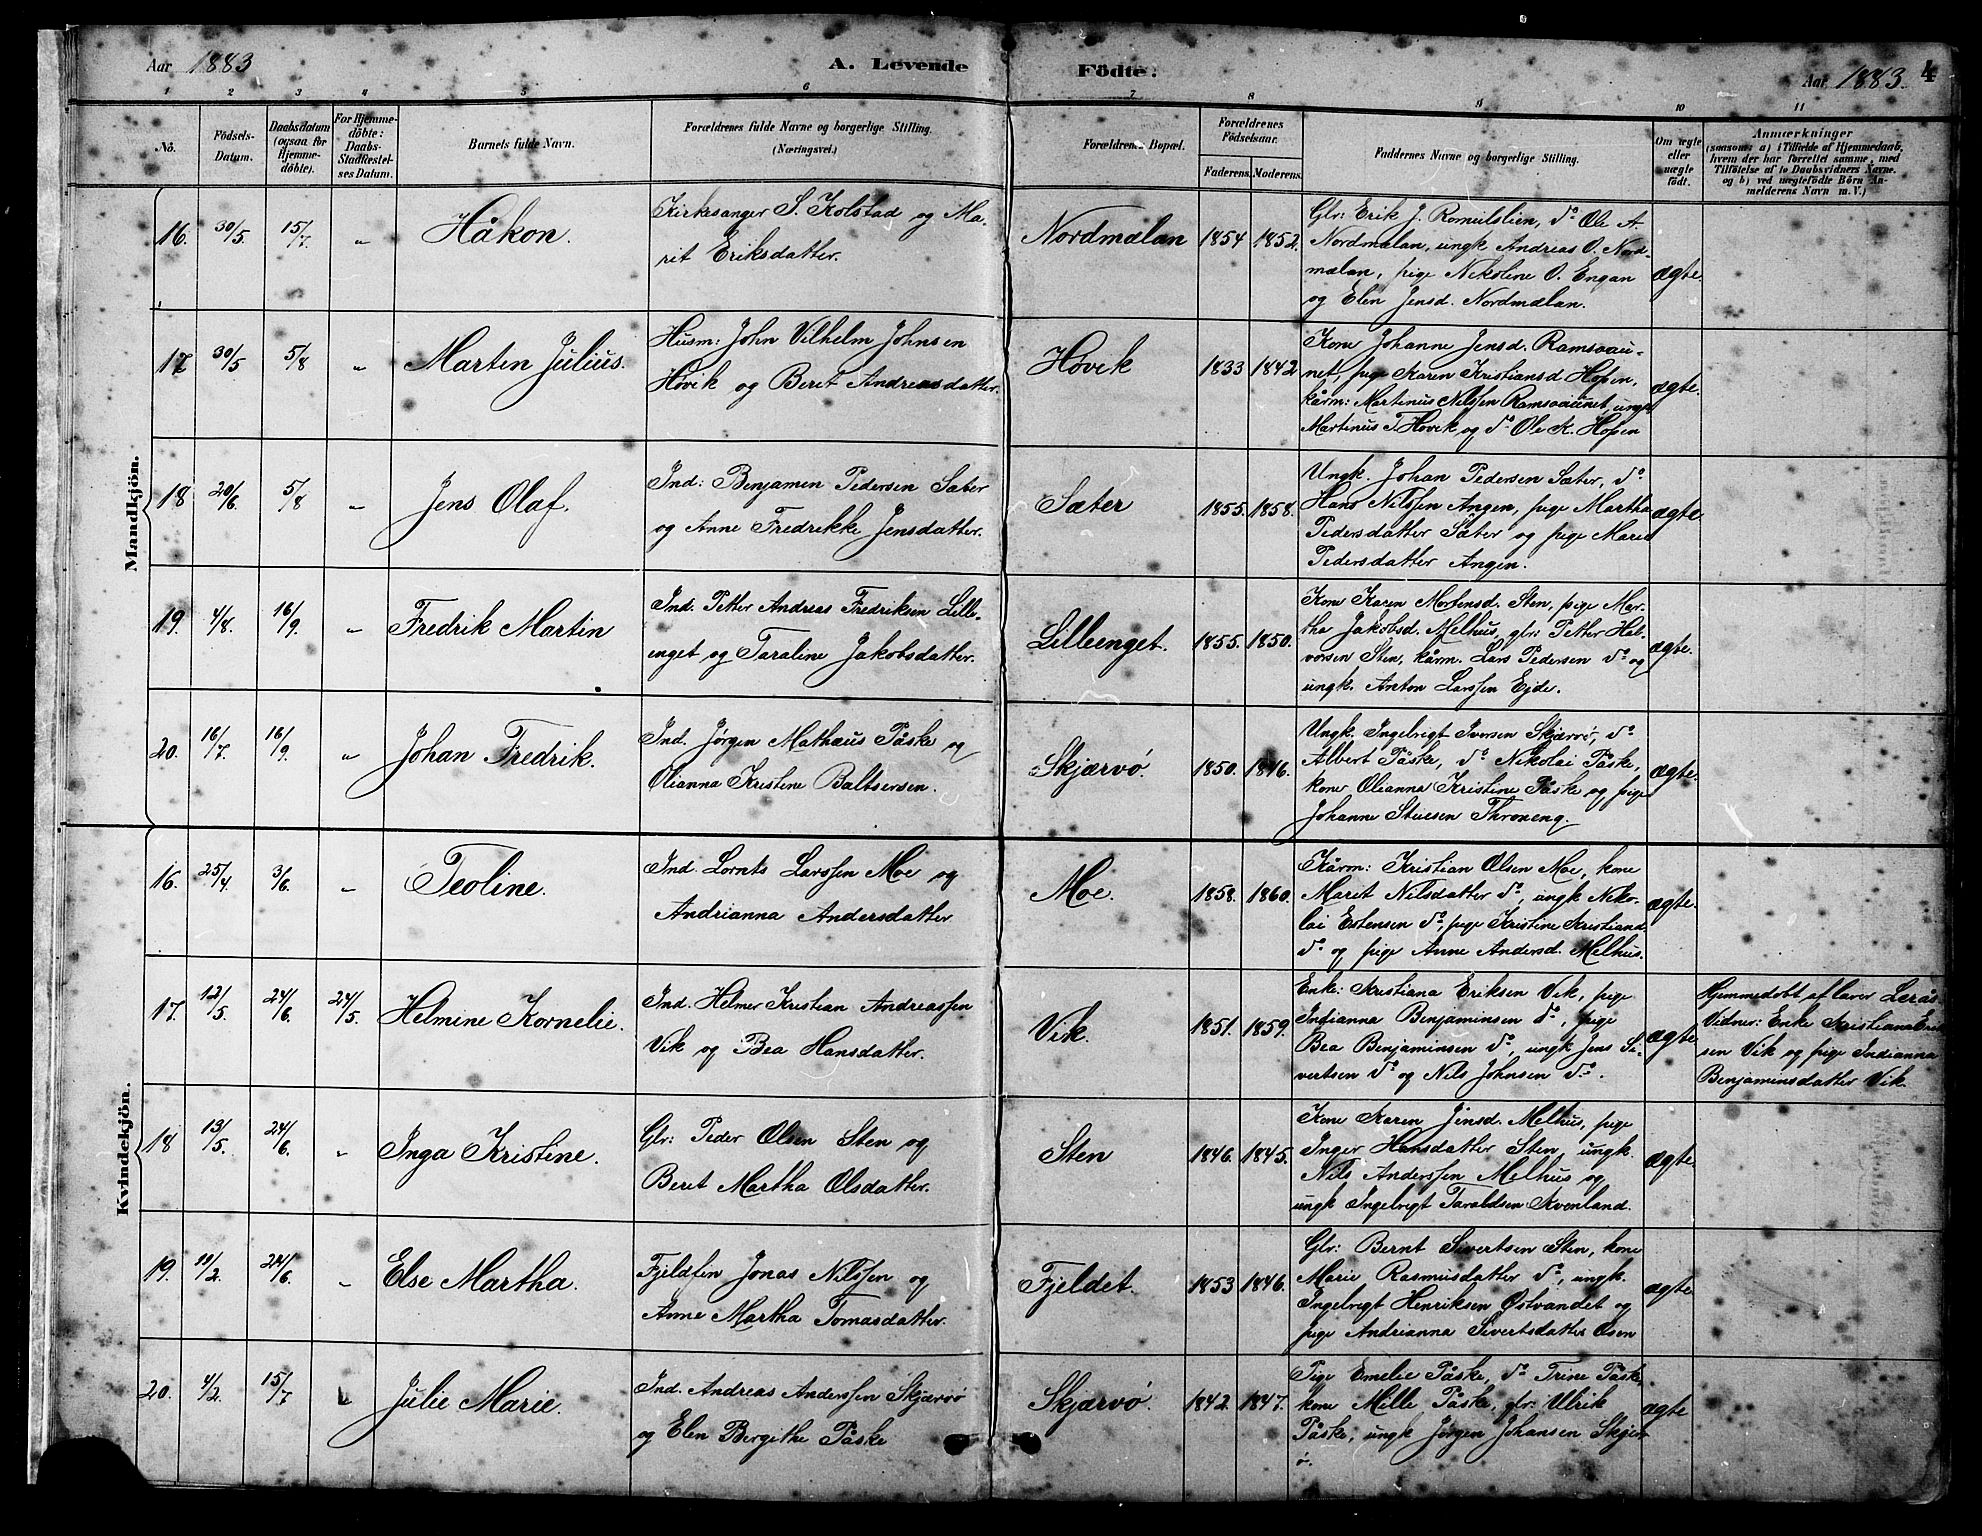 Aar 1883
A. Levende Födte.
Aar 1883.
4
1 2 3 4 5 6 7 8 9 10 11
No.
Födsels-
Datum.
Daabsdatum
(ogsaa for
Hjemme-
döbte).
For Hjemme-
döbte:
Daabs-
Stadfæstel-
ses Datum.
Barnets fulde Navn.
Forældrenes fulde Navne og borgerlige Stilling.
(Næringsvei.)
Forældrenes Bopæl.
Forældrenes
Födselsaar.
Faderens. Moderens.
Faddernes Navne og borgerlige Stilling.
Om ægte
eller
uægte
født.
Anmærkninger
(saasom: a) i Tilfælde af Hjemmedaab,
hvem der har forrettet samme, med
Tilföielse af to Daabsvidners Navne.
og b) ved uægtefödte Börn An-
melderens Navn m. V.)
Mandkjön.
16. 30/5. 15/7. „ Håkon.
Kirkesanger S. Kolstad og Ma-
rit Eriksdatter.
Nordmælan 1854 1852.
Glr: Erik J. Romulslien, do Ole A.
Nordmælan, ungk Andreas O. Nord-
mælan, pige Nikoline O. Engan
og Elen Jensd. Nordmælan.
ægte.
17 30/5. 5/8 „ Martin Julius.
Husm: John Vilhelm Johnsen
Hovik og Beret Andreasdatter.
Hovik 1833 1842
Kone Johanne Jensd. Ramsvau-
net, pige Karen Kristiansd Hopen,
kårm: Martinus Nilssen Ramsvaunet, ungk
Martinus T. Hovik og do Ole K. Hopen
ægte.
18 20/6. 5/8 „ Jens Olaf.
Ind: Benjamin Pedersen Sæter
og Anne Fredrikke Jensdatter.
Sæter 1855. 1858.
Ungk. Johan Pedersen Sæter, do
Hans Nilssen Angen, pige Martha
Pedersdatter Sæter og pige Marie
Pedersdatter Angen.
ægte.
19. 4/8. 16/9. „ Fredrik Martin
Ind. Petter Andreas Fredriksen Lille-
enget og Taraline Jakobsdatter.
Lilleenget. 1855. 1850.
Kone Karen Mortensd. Sten, pige Mar-
tha Jakobsd. Melhus, glr: Petter Hal-
vorsen Sten, kårm. Lars Pedersen do og
ungk. Anton Larssen Ejde.
ægte.
20. 16/7. 16/9. „ Johan Fredrik.
Ind. Jørgen Mathæus Påske og
Olianna Kristine Baltsersen.
Skjærvö. 1850. 1846.
Ungk. Ingebrigt Iversen Skjærvö, do
Albert Påske, do Nikolai Påske,
kone Olianna Kristine Påske og pige
Johanne Stuesen Throneng.
ægte.
Kvindekjön.
16. 25/4. 3/6. „ Teoline.
Ind. Lornts Larssen Moe og
Andrianna Andersdatter
Moe. 1858. 1860.
Kårm: Kristian Olsen Moe, kone
Maret Nilsdatter do, ungk Niko-
lai Estensen do, pige Kristine Kristiansd.
do og pige Anne Andersd. Melhus.
ægte.
17. 12/5. 24/6. 24/5. Helmine Kornelie.
Ind. Helmer Kristian Andreassen
Vik og Bea Hansdatter.
Vik. 1851. 1859.
Enke: Kristiana Eriksen Vik, pige
Indianna Benjaminsen do, pige
Bea Benjaminsen do, ungk Jens Si-
vertsen do og Nils Johnsen do.
ægte
Hjemmedøbt af lærer Lerås
Vidner: Enke Kristiana Erik-
sen Vik og pige Indianna
Benjaminsdatter Vik.
18 13/5. 24/6. „ Inga Kristine.
Glr: Peder Olsen Sten og
Beret Martha Olsdatter.
Sten 1846. 1845.
Kone Karen Jensd. Melhus, pige
Inger Hansdatter Sten, ungk.
Nils Anderssen Melhus og
ungk Ingebrigt Taraldsen Kvenland.
ægte
19. 11/2. 24/6. „ Else Martha.
Fjeldfin Jonas Nilssen og
Anne Martha Tomasdatter.
Fjeldet. 1853 1846.
Glr: Bernt Sivertsen Sten, kone
Marie Rasmusdatter do, ungk.
Ingebrigt Henriksen Østvandet og
pige Andrianna Sivertsdatter Osen
ægte
20. 4/2. 15/7 „ Julie Marie.
Ind. Andreas Anderssen Skjærvö
og Elen Bergithe Påske
Skjærvö. 1842. 1847.
Pige Emelie Påske, do Trine Påske,
kone Mille Påske, glr: Ulrik
Påske, ungk Jørgen Johansen Skjær-
ö.
ægte